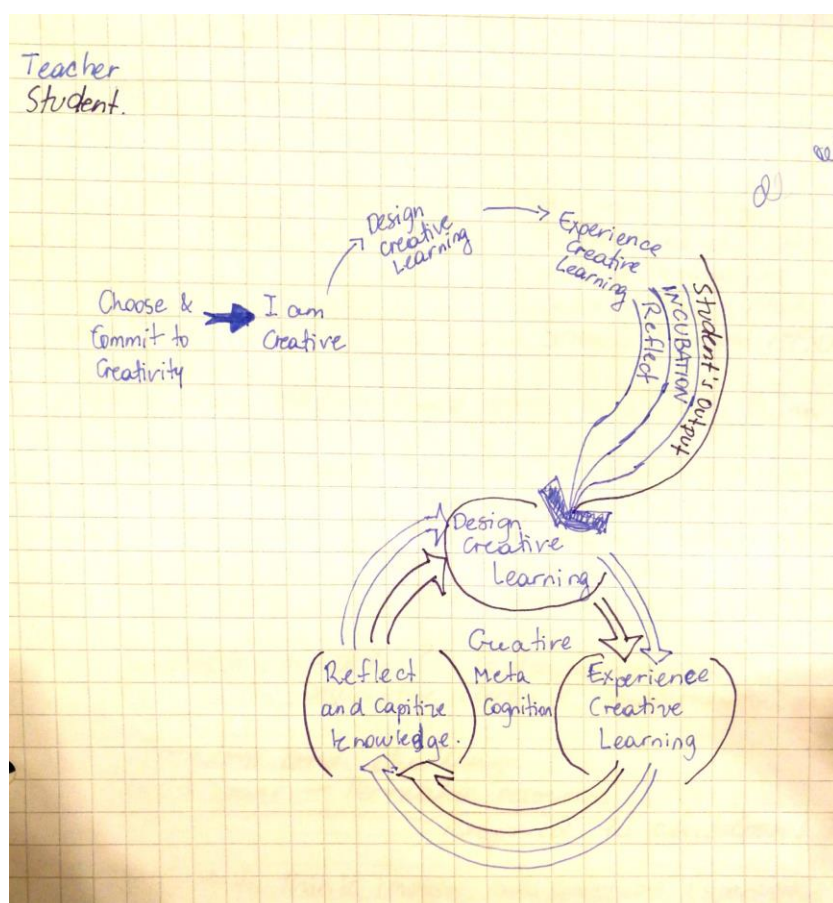 Teacher
Student.
Choose &
Commit to
Creativity
I am
Creative
Design
Creative
Learning
Experience
Creative
Learning
Reflect
INCUBATION
Student's Output
Design
Creative
Learning
Creative
Meta
Cognition
Experience
Creative
Learning
Reflect
and Capitize
knowledge.